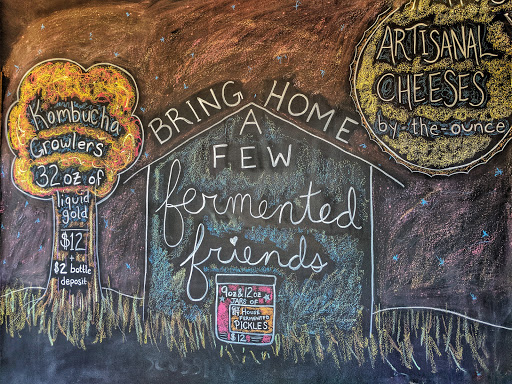 Kombucha
Growlers
32 oz of
liquid
gold
$12
+
$2 bottle
deposit
BRING HOME
A
FEW
fermented
friends
9oz & 12oz
JARS OF
IN HOUSE
FERMENTED
PICKLES
ARTISANAL
CHEESES
by-the-ounce